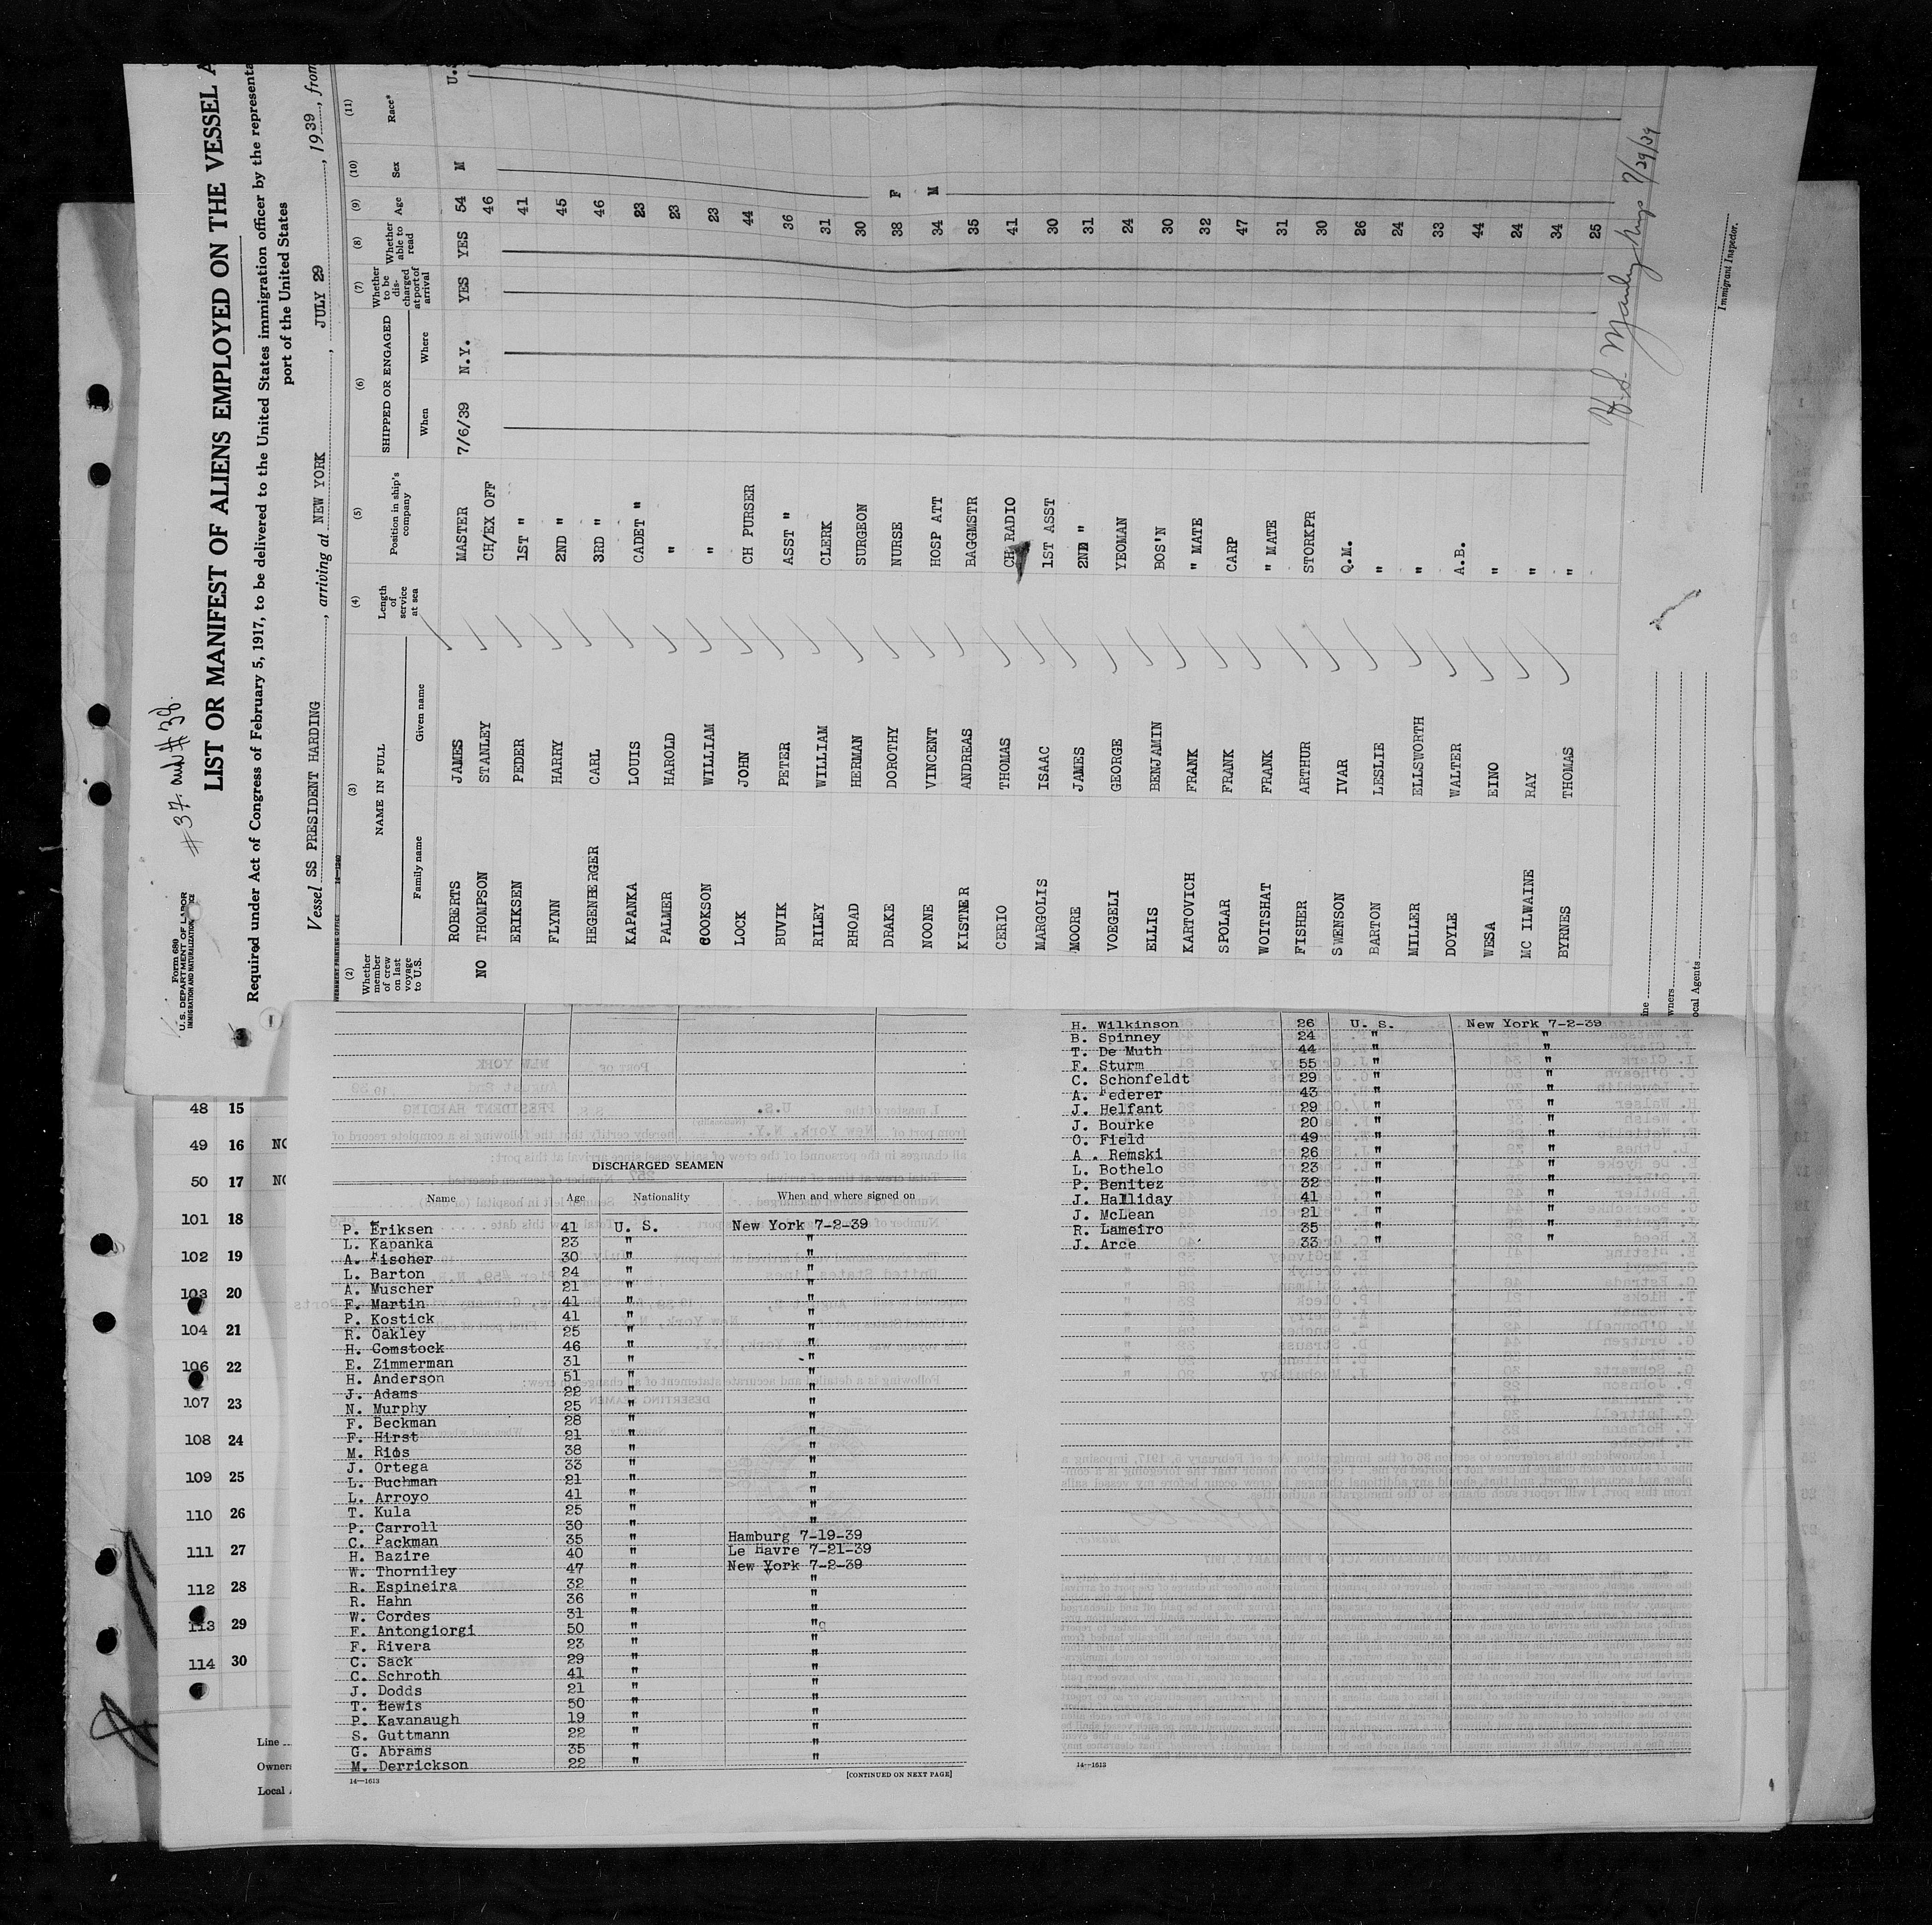 #37 and #38
Form 680
U. S. DEPARTMENT OF LABOR
IMMIGRATION AND NATURALIZATION SERVICE
LIST OR MANIFEST OF ALIENS EMPLOYED ON THE VESSEL A
Required under Act of Congress of February 5, 1917, to be delivered to the United States immigration officer by the representa
port of the United States
Vessel SS PRESIDENT HARDING, arriving at NEW YORK, JULY 29, 1939, from
(2) (3) (4) (5) (6) (7) (8) (9) (10) (11)
Whether member of crew on last voyage to U.S. NAME IN FULL Length of service at sea Position in ship's company SHIPPED OR ENGAGED Whether to be discharged at port of arrival Whether able to read Age Sex Race*
Family name Given name When Where
ROBERTS JAMES MASTER 7/6/39 N.Y. YES YES 54 M U.S.
NO THOMPSON STANLEY CH/EX OFF 46
ERIKSEN PEDER 1ST " 41
FLYNN HARRY 2ND " 45
HEGENBERGER CARL 3RD " 46
KAPANKA LOUIS CADET " 23
PALMER HAROLD " 23
COOKSON WILLIAM " 23
LOCK JOHN CH PURSER 44
BUVIK PETER ASST " 36
RILEY WILLIAM CLERK 31
RHOAD HERMAN SURGEON 30
DRAKE DOROTHY NURSE 38 F
NOONE VINCENT HOSP ATT 34 M
KISTNER ANDREAS BAGGMSTR 35
CERIO THOMAS CH RADIO 41
MARGOLIS ISAAC 1ST ASST 30
MOORE JAMES 2ND " 31
VOEGELI GEORGE YEOMAN 24
ELLIS BENJAMIN BOS'N 30
KARTOVICH FRANK " MATE 32
SPOLAR FRANK CARP 47
WOITSHAT FRANK " MATE 31
FISHER ARTHUR STORKPR 30
SWENSON IVAR Q.M. 26
BARTON LESLIE " 24
MILLER ELLSWORTH " 33
DOYLE WALTER A.B. 44
WESA EINO " 24
MC ILWAINE RAY " 34
BYRNES THOMAS " 25
7/29/39
Immigrant Inspector.
ine
wners
ocal Agents
48 15
49 16 NO
50 17 NO
101 18
102 19
103 20
104 21
106 22
107 23
108 24
109 25
110 26
111 27
112 28
113 29
114 30
Line
Owners
Local A
DISCHARGED SEAMEN
Name Age Nationality When and where signed on
P. Eriksen 41 U. S. New York 7-2-39
L. Kapanka 23 " "
A. Fischer 30 " "
L. Barton 24 " "
A. Muscher 21 " "
F. Martin 41 " "
P. Kostick 41 " "
R. Oakley 25 " "
H. Comstock 46 " "
E. Zimmerman 31 " "
H. Anderson 51 " "
J. Adams 22 " "
N. Murphy 25 " "
F. Beckman 28 " "
F. Hirst 21 " "
M. Rios 38 " "
J. Ortega 33 " "
L. Buchman 21 " "
L. Arroyo 41 " "
T. Kula 25 " "
P. Carroll 30 " "
C. Packman 35 " Hamburg 7-19-39
H. Bazire 40 " Le Havre 7-21-39
W. Thorniley 47 " New York 7-2-39
R. Espineira 32 " "
R. Hahn 36 " "
W. Cordes 31 " "
F. Antongiorgi 50 " "
F. Rivera 23 " "
C. Sack 29 " "
C. Schroth 41 " "
J. Dodds 21 " "
T. Bewis 50 " "
P. Kavanaugh 19 " "
S. Guttmann 22 " "
G. Abrams 35 " "
M. Derrickson 22 " "
14—1613 [CONTINUED ON NEXT PAGE]
H. Wilkinson 26 U. S. New York 7-2-39
B. Spinney 24 " "
T. De Muth 44 " "
F. Sturm 55 " "
C. Schonfeldt 29 " "
A. Federer 43 " "
J. Helfant 29 " "
J. Bourke 20 " "
O. Field 49 " "
A. Remski 26 " "
L. Bothelo 23 " "
P. Benitez 32 " "
J. Halliday 41 " "
J. McLean 21 " "
R. Lameiro 35 " "
J. Arce 33 " "
14—1613